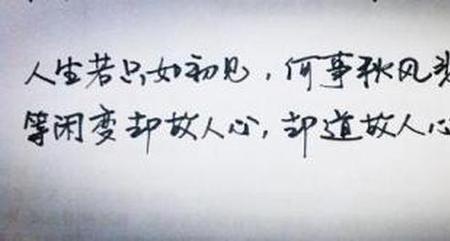 人生若只如初见，何事秋风
等闲变却故人心，却道故人心